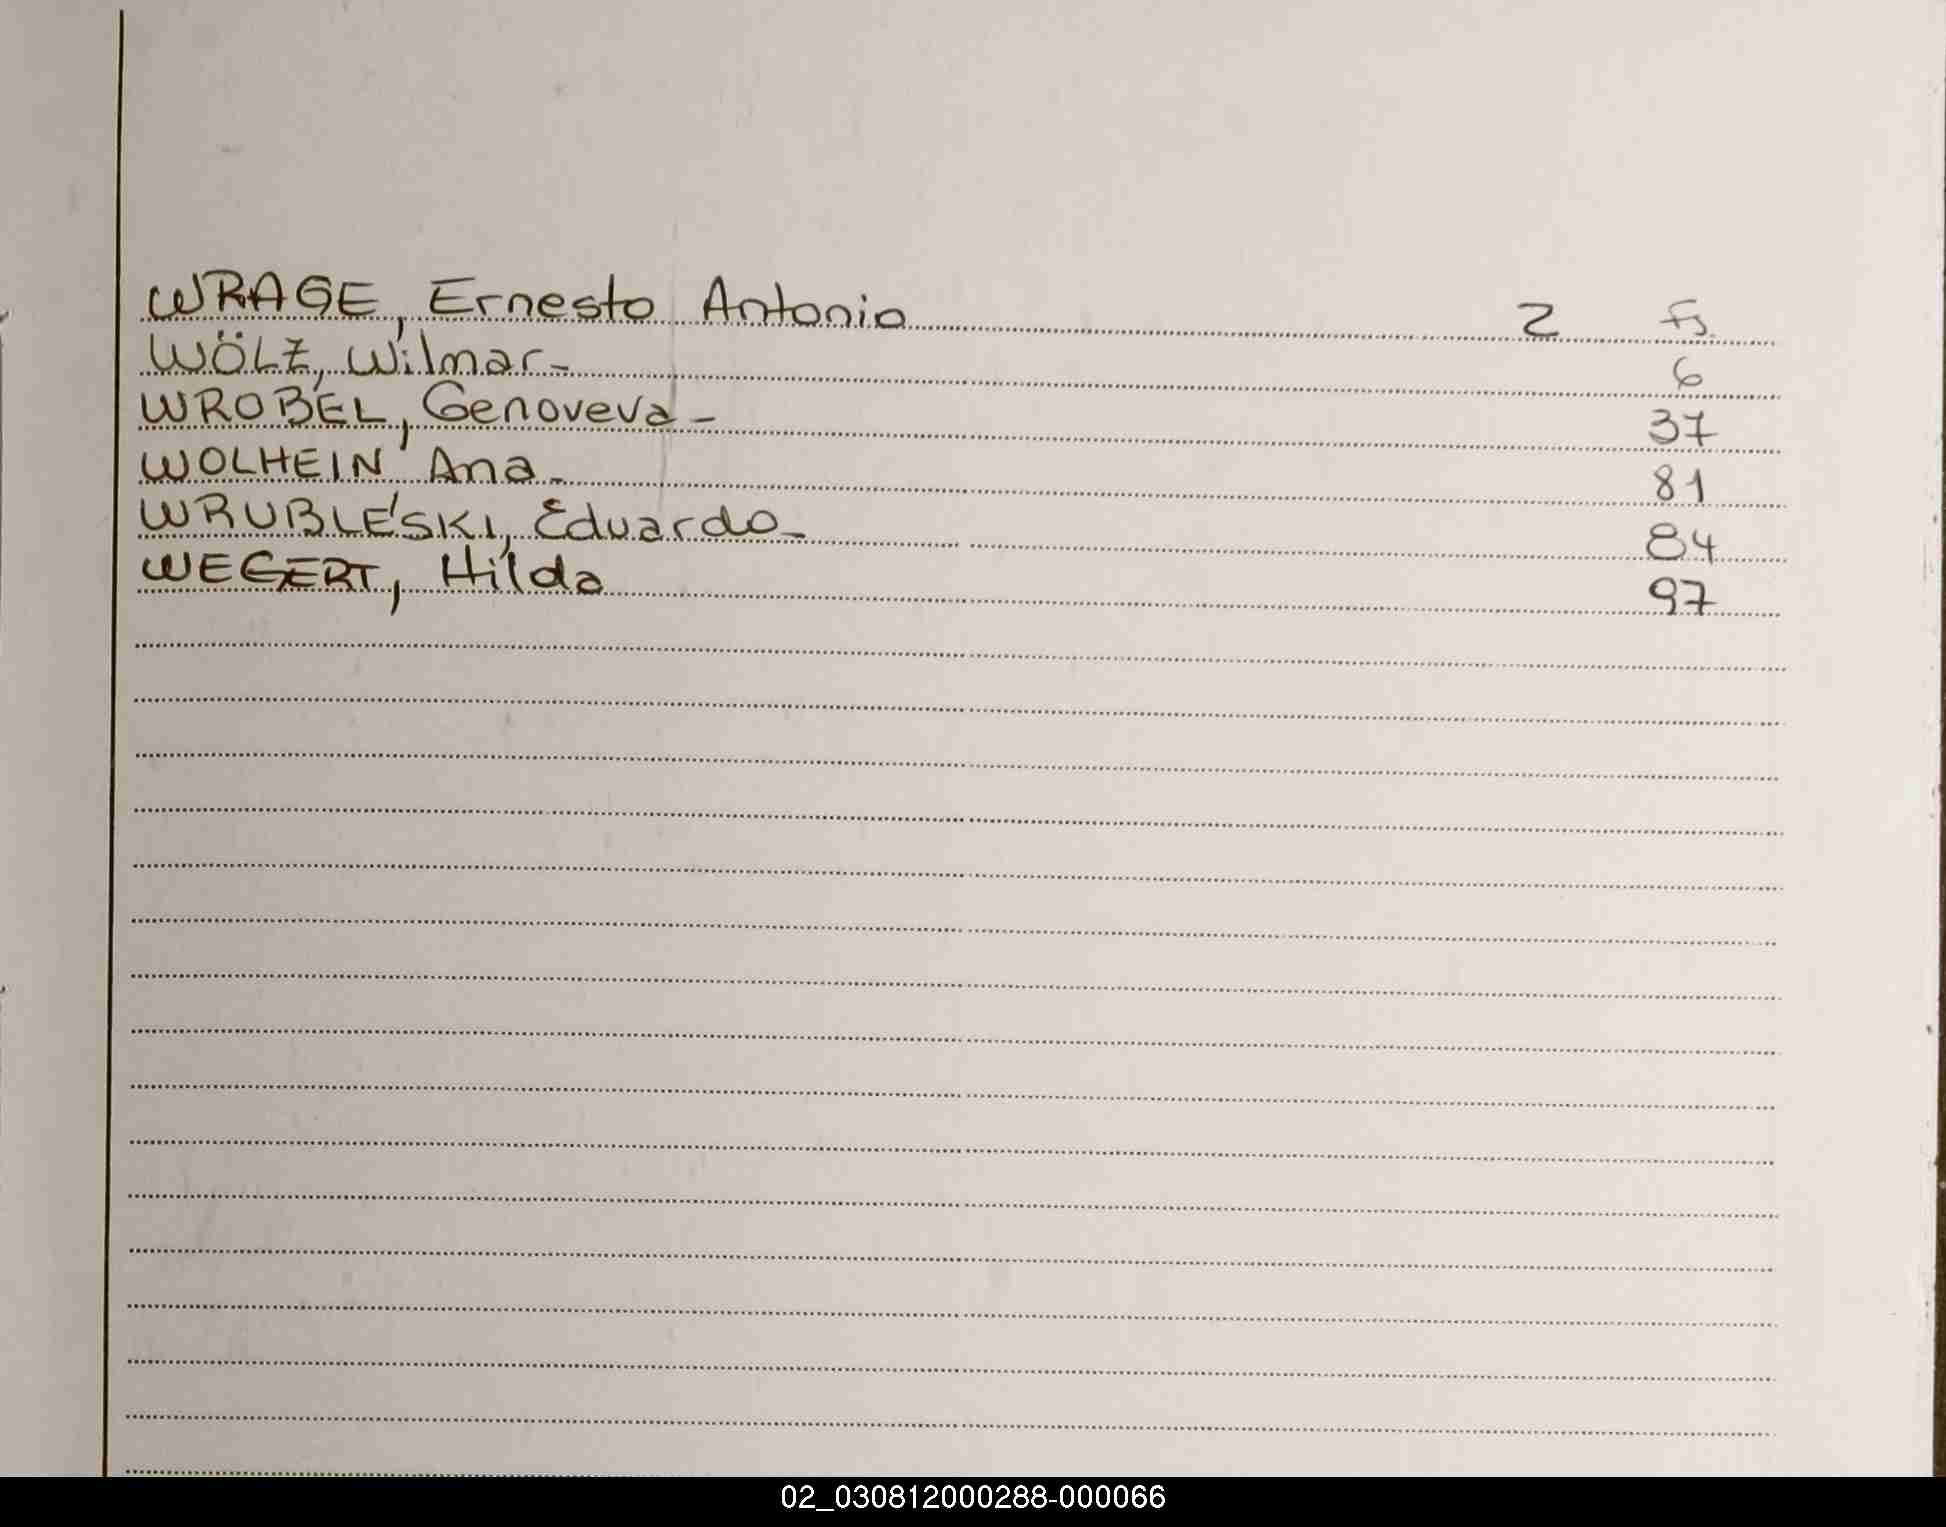 WRAGE, Ernesto Antonio 2 Fs.
WÖLZ, Wilmar- 6
WROBEL, Genoveva- 37
WOLHEIN Ana- 81
WRUBLÉSKI, Eduardo- 84
WEGERT, Hilda 97
02_030812000288-000066